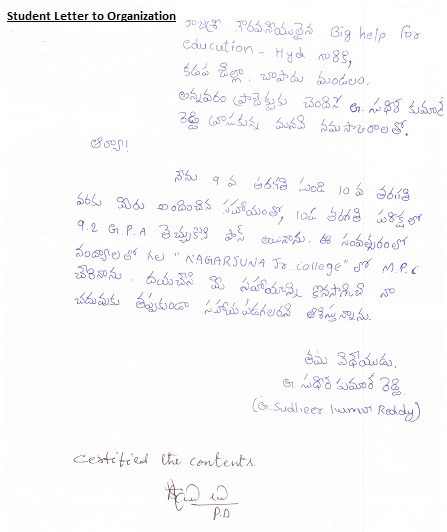 Student Letter to Organization
రాజశ్రీ గౌరవనీయులైన Big help for
education - Hyd వారికి,
కడప జిల్లా, చాపాడు మండలం,
అన్నవరం ప్రాజెక్టుకు చెందిన G. సుధీర్ కుమార్
రెడ్డి వ్రాసుకున్న మనవి నమస్కారాలతో.
ఆర్యా!
నేను 9 వ తరగతి నుండి 10 వ తరగతి
వరకు మీరు అందించిన సహాయంతో, 10వ తరగతి పరీక్షలో
9.2 G.P.A తెచ్చుకొని పాస్ అయినాను. ఈ సంవత్సరంలో
నంద్యాలలో గల "NAGARJUNA Jr. college" లో M.P.C
చేరినాను. దయచేసి మీ సహాయాన్ని కొనసాగించి నా
చదువుకు తప్పకుండా సహాయపడగలరని ఆశిస్తున్నాను.
తమ విధేయుడు,
G. సుధీర్ కుమార్ రెడ్డి
(G. Sudheer kumar Reddy)
Certified the contents
P.D